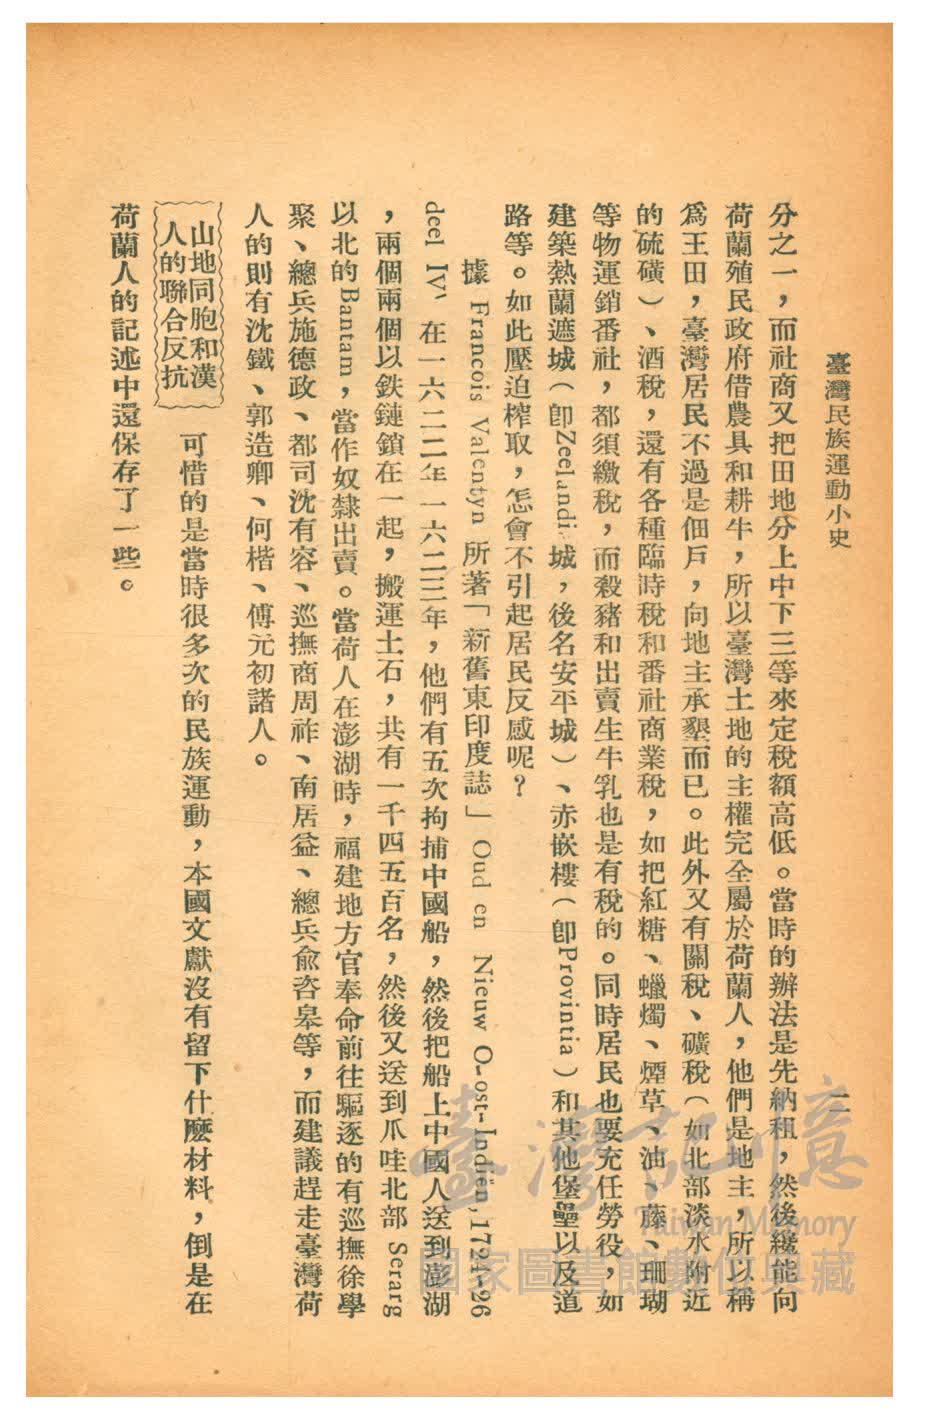 臺灣民族運動小史
一二
分之一，而社商又把田地分上中下三等來定稅額高低。當時的辦法是先納租，然後纔能向
荷蘭殖民政府借農具和耕牛，所以臺灣土地的主權完全屬於荷蘭人，他們是地主，所以稱
爲王田，臺灣居民不過是佃戶，向地主承墾而已。此外又有關稅、礦稅（如北部淡水附近
的硫磺）、酒稅，還有各種臨時稅和番社商業稅，如把紅糖、蠟燭、煙草、油、藤、珊瑚
等物運銷番社，都須繳稅，而殺豬和出賣生牛乳也是有稅的。同時居民也要充任勞役，如
建築熱蘭遮城（卽Zeelandia城，後名安平城）、赤嵌樓（卽Provintia）和其他堡壘以及道
路等。如此壓迫榨取，怎會不引起居民反感呢？
據 Francois Valentyn 所著「新舊東印度誌」Oud en Nieuw O-ost-Indiën, 1724-26
deel IV，在一六二二年一六二三年，他們有五次拘捕中國船，然後把船上中國人送到澎湖
，兩個兩個以鉄鏈鎖在一起，搬運土石，共有一千四五百名，然後又送到爪哇北部 Serarg
以北的Bantam，當作奴隸出賣。當荷人在澎湖時，福建地方官奉命前往驅逐的有巡撫徐學
聚、總兵施德政、都司沈有容、巡撫商周祚、南居益、總兵俞咨皋等，而建議趕走臺灣荷
人的則有沈鐵、郭造卿、何楷、傅元初諸人。
山地同胞和漢
人的聯合反抗
可惜的是當時很多次的民族運動，本國文獻沒有留下什麼材料，倒是在
荷蘭人的記述中還保存了一些。
臺灣記憶
Taiwan Memory
國家圖書館數位典藏